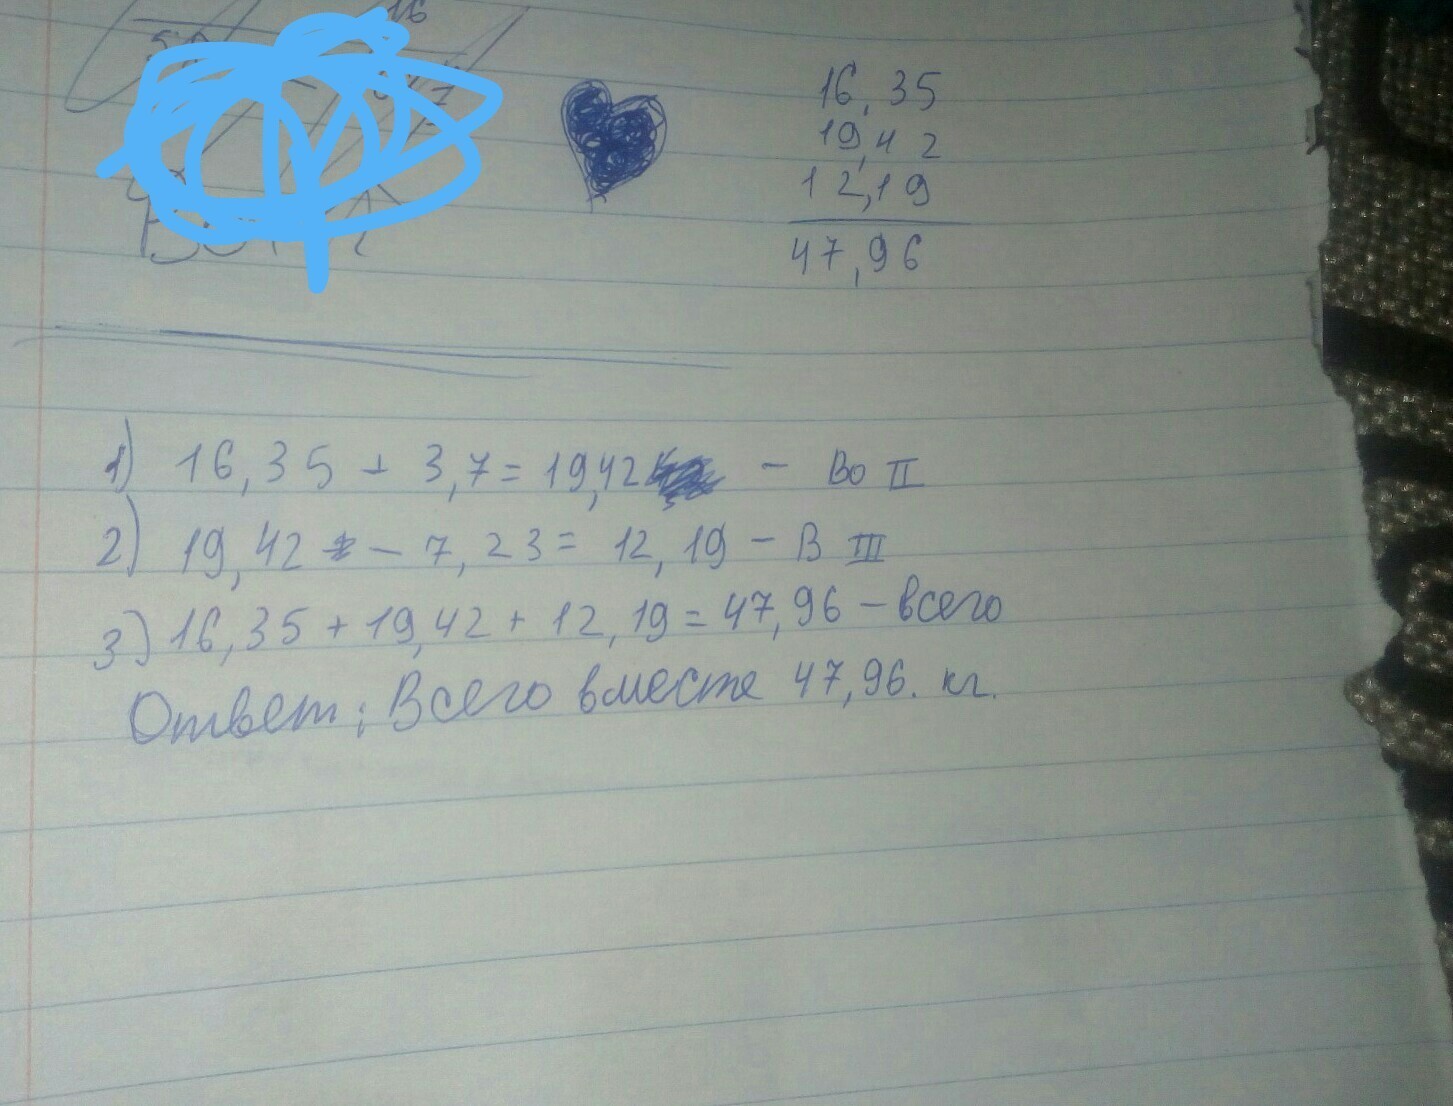 16
16,35
19,42
12,19
47,96
1) 16,35 + 3,7 = 19,42 - Во II
2) 19,42 - 7,23 = 12,19 - В III
3) 16,35 + 19,42 + 12,19 = 47,96 - всего
Ответ: Всего вместе 47,96. кг.